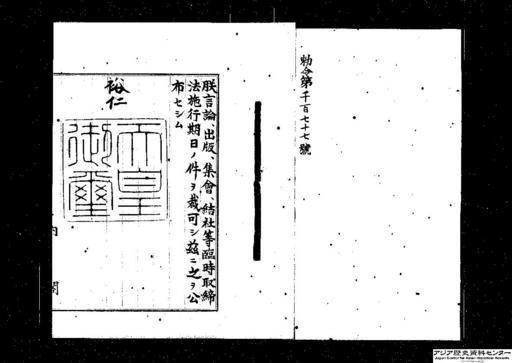 勅令第千百七十七號
朕言論、出版、集會、結社等臨時取締
法施行期日ノ件ヲ裁可シ茲ニ之ヲ公
布セシム
裕仁
天皇
御璽
内
閣
アジア歴史資料センター
Japan Center for Asian Historical Records